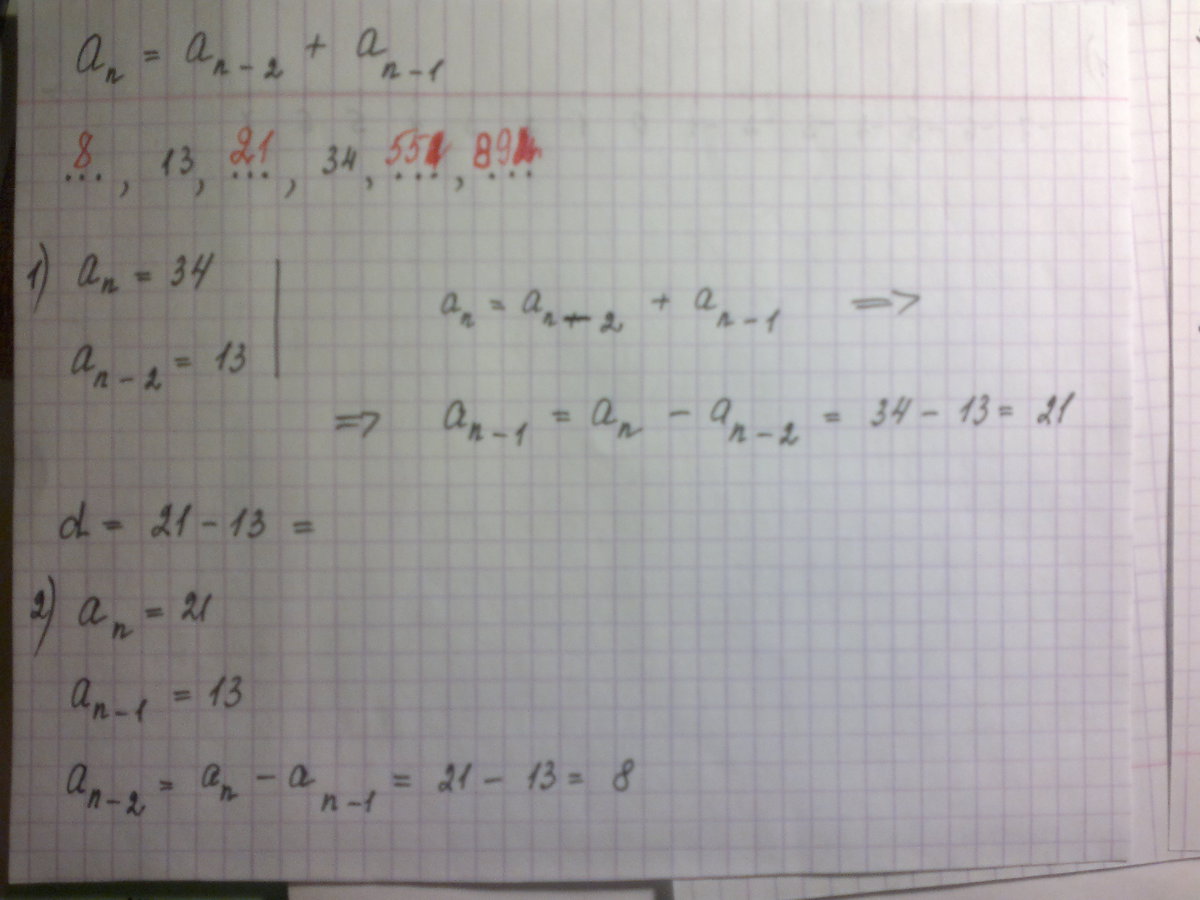 aₙ = aₙ₋₂ + aₙ₋₁
8, 13, 21, 34, 55, 89
1) aₙ = 34
aₙ = aₙ₋₂ + aₙ₋₁ =>
aₙ₋₂ = 13
=> aₙ₋₁ = aₙ - aₙ₋₂ = 34 - 13 = 21
d = 21 - 13 =
2) aₙ = 21
aₙ₋₁ = 13
aₙ₋₂ = aₙ - aₙ₋₁ = 21 - 13 = 8